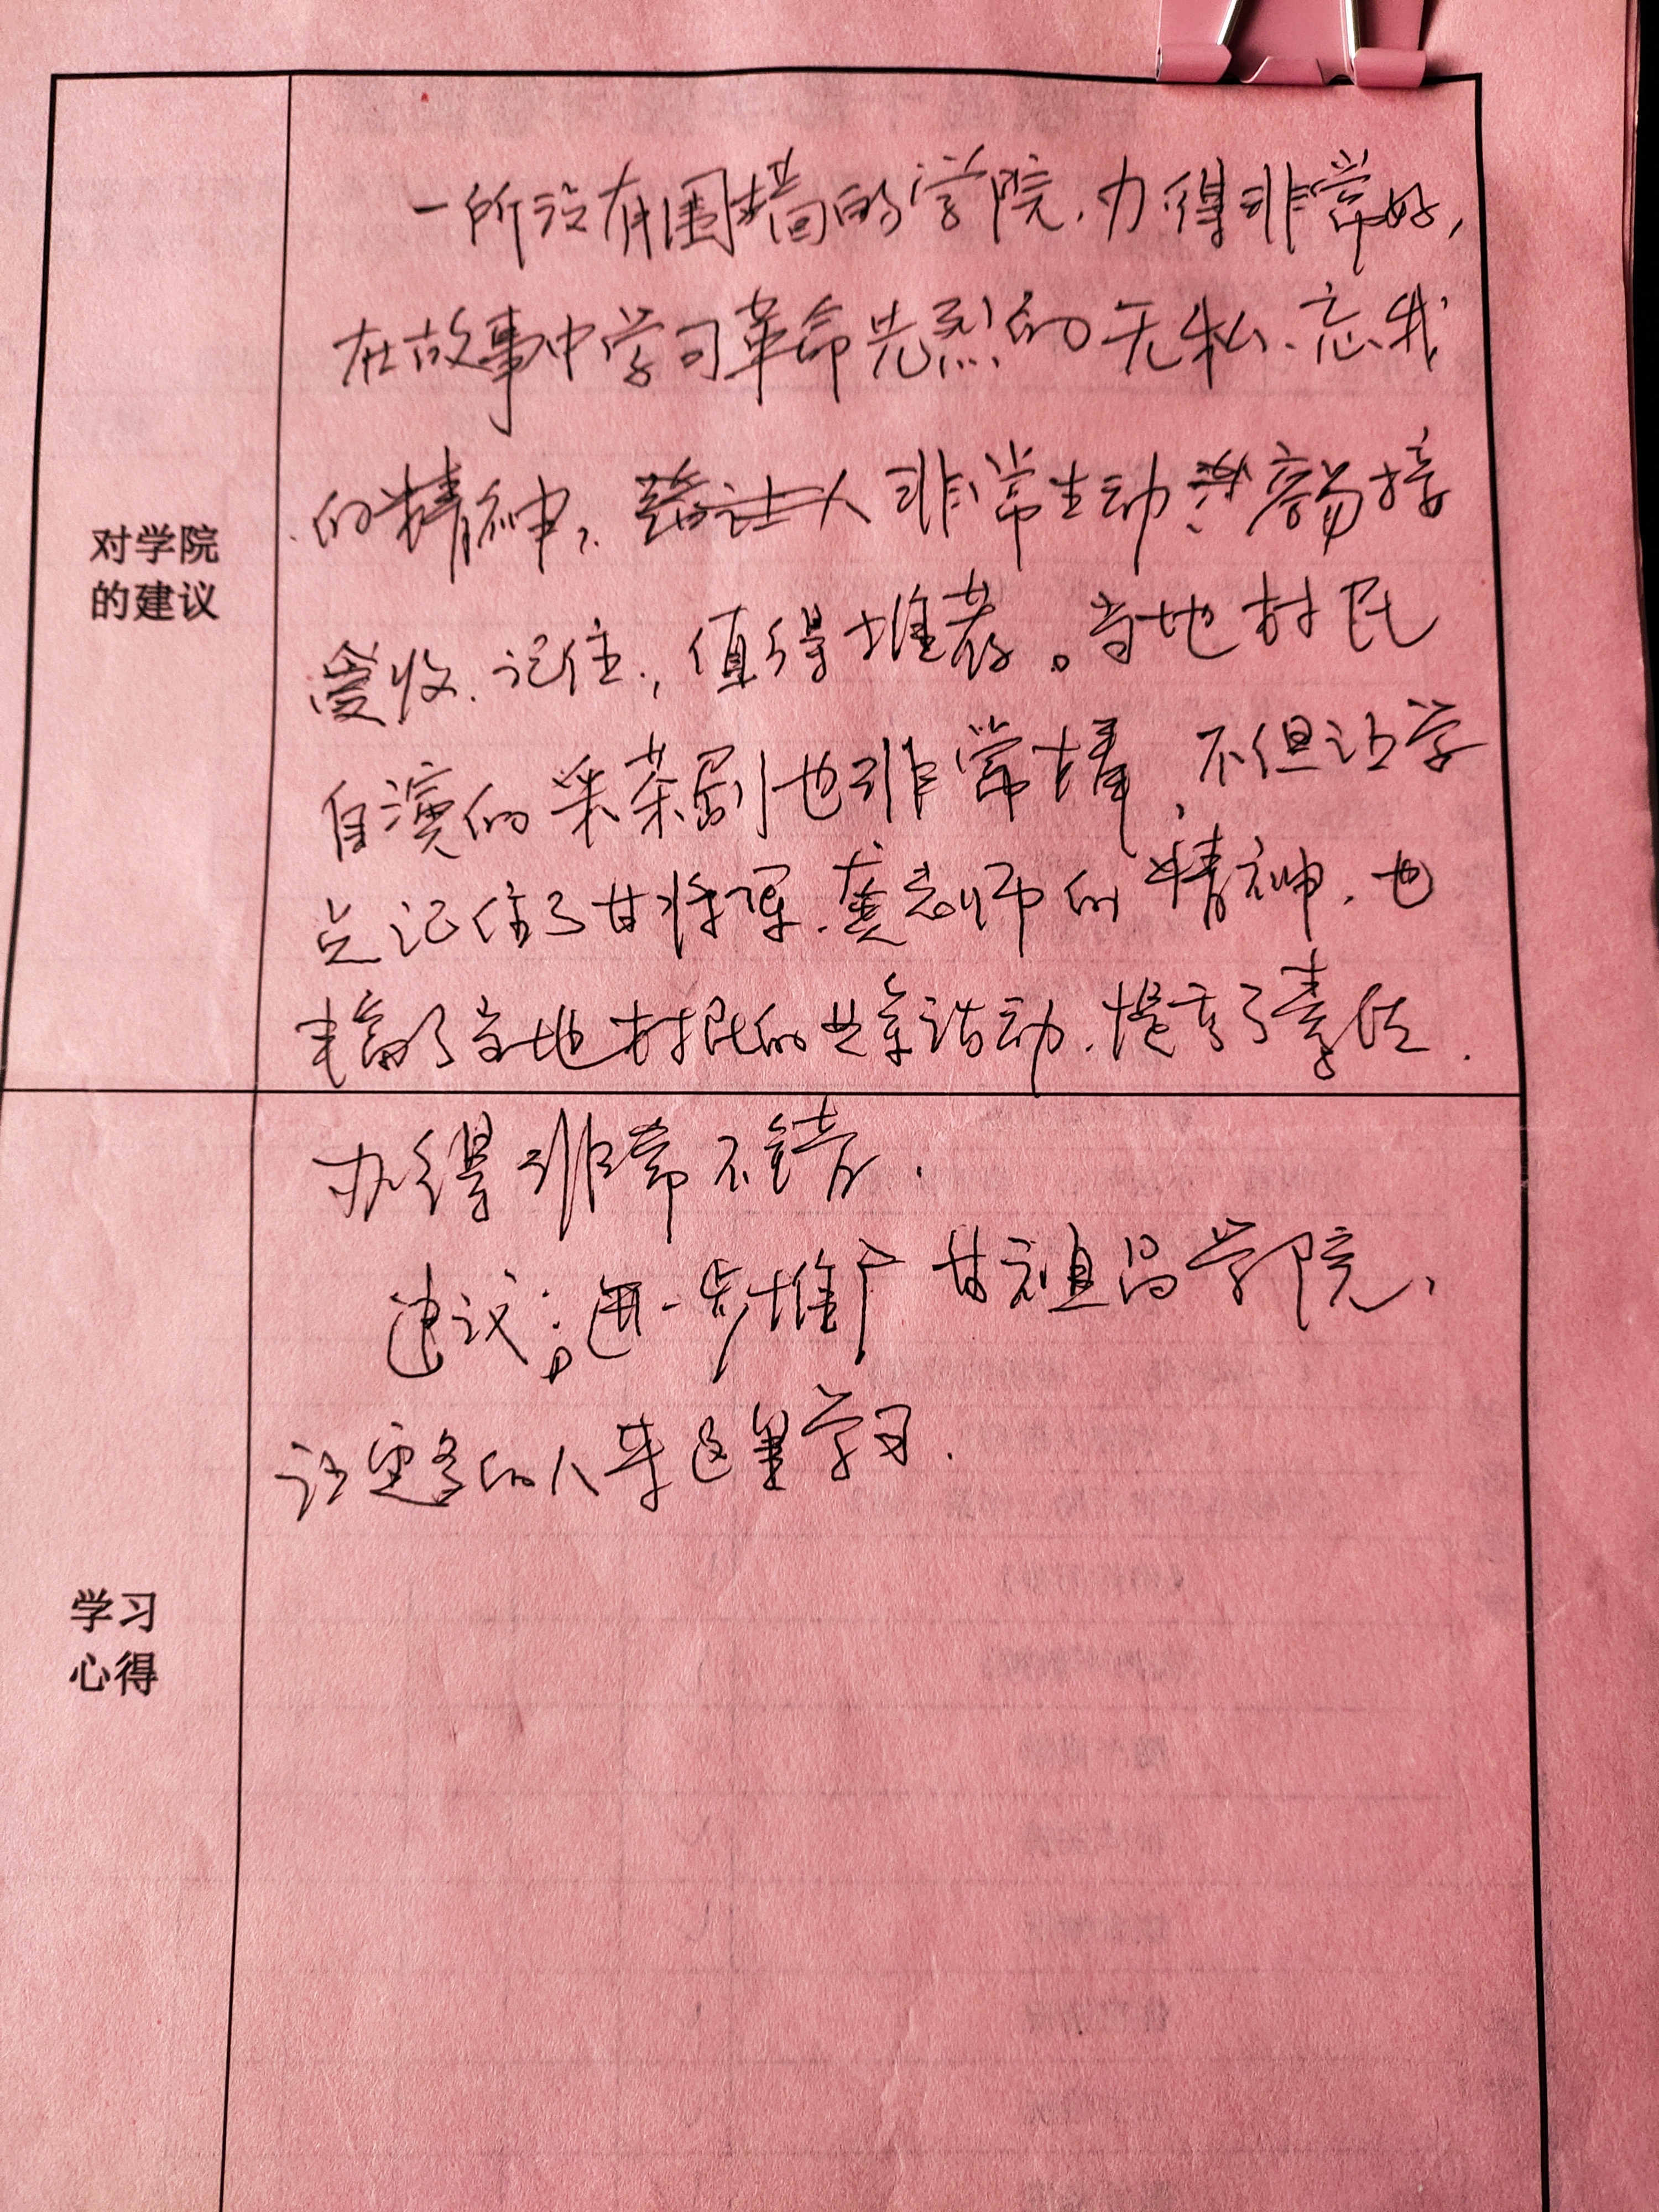 一所没有围墙的学院，办得非常好，
在故事中学习革命先烈的无私、忘我
对学院
的建议
的精神，非常生动容易接
受收、记住，值得推荐。当地村民
自演的采茶剧也非常棒，不但让学
员记住了甘将军、龚老师的精神，也
丰富了当地村民的业余活动，提高了素质.
办得非常不错.
建议：进一步推广甘祖昌学院，
让更多的人来这里学习.
学习
心得